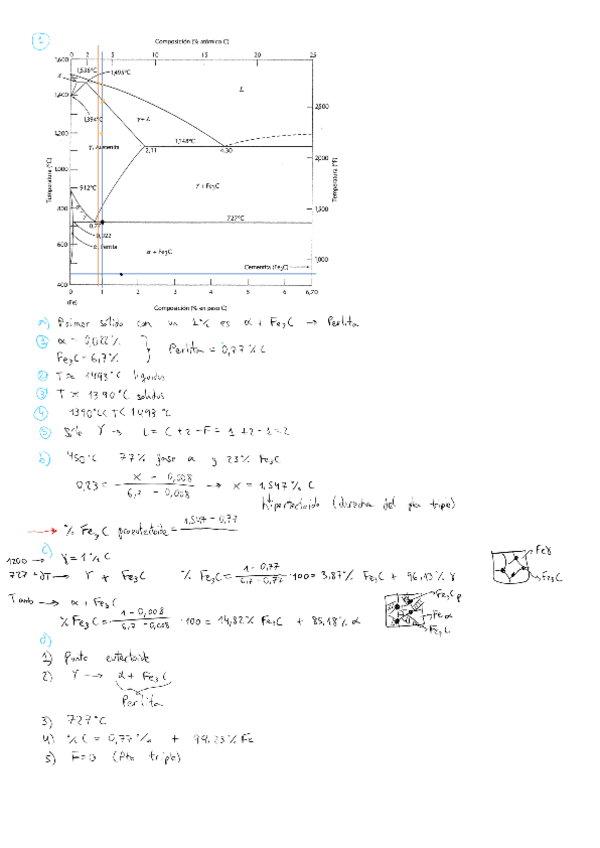 1
Composición (% atómico C)
0 2 5 10 15 20 25
1,600
1,538°C
1,495°C
1,400
L
2,500
1,394°C
γ + L
1,200
γ, Austenita
1,148°C
2,11
4,30
2,000
1000
912°C
γ + Fe₃C
Temperatura (°C)
Temperatura (°F)
800
727°C
1,500
0,77
0,022
600
α, Ferrita
α + Fe₃C
1,000
Cementita (Fe₃C)
400
0 1 2 3 4 5 6 6,70
(Fe)
Composición (% en peso C)
a) Primer sólido con un 1% es α + Fe₃C → Perlita
1 α = 0,022% } Perlita = 0,77% C
Fe₃C = 6,7%
2 T ≈ 1493°C liquidus
3 T ≈ 1390°C solidus
4 1390°C < T < 1493°C
5 Sólo γ → L = C + 2 - F = 1 + 2 - 1 = 2
b) 450°C 77% fase α y 23% Fe₃C
0,23 = x - 0,008 / 6,7 - 0,008 → x = 1,547% C
hipereutectoide (derecha del pto triple)
→ % Fe₃C proeutectoide = 1,547 - 0,77
c)
1200 → γ = 1% C
727 + dT → γ + Fe₃C % Fe₃C = 1 - 0,77 / 6,7 - 0,77 · 100 = 3,87% Fe₃C + 96,13% γ
Feγ
Fe₃C
T amb → α + Fe₃C
% Fe₃C = 1 - 0,008 / 6,7 - 0,008 · 100 = 14,82% Fe₃C + 85,18% α
Fe₃C p
Feα
Fe₃C
d)
1) Punto eutectoide
2) γ → α + Fe₃C
Perlita
3) 727°C
4) % C = 0,77% + 99,23% Fe
5) F = 0 (Pto triple)